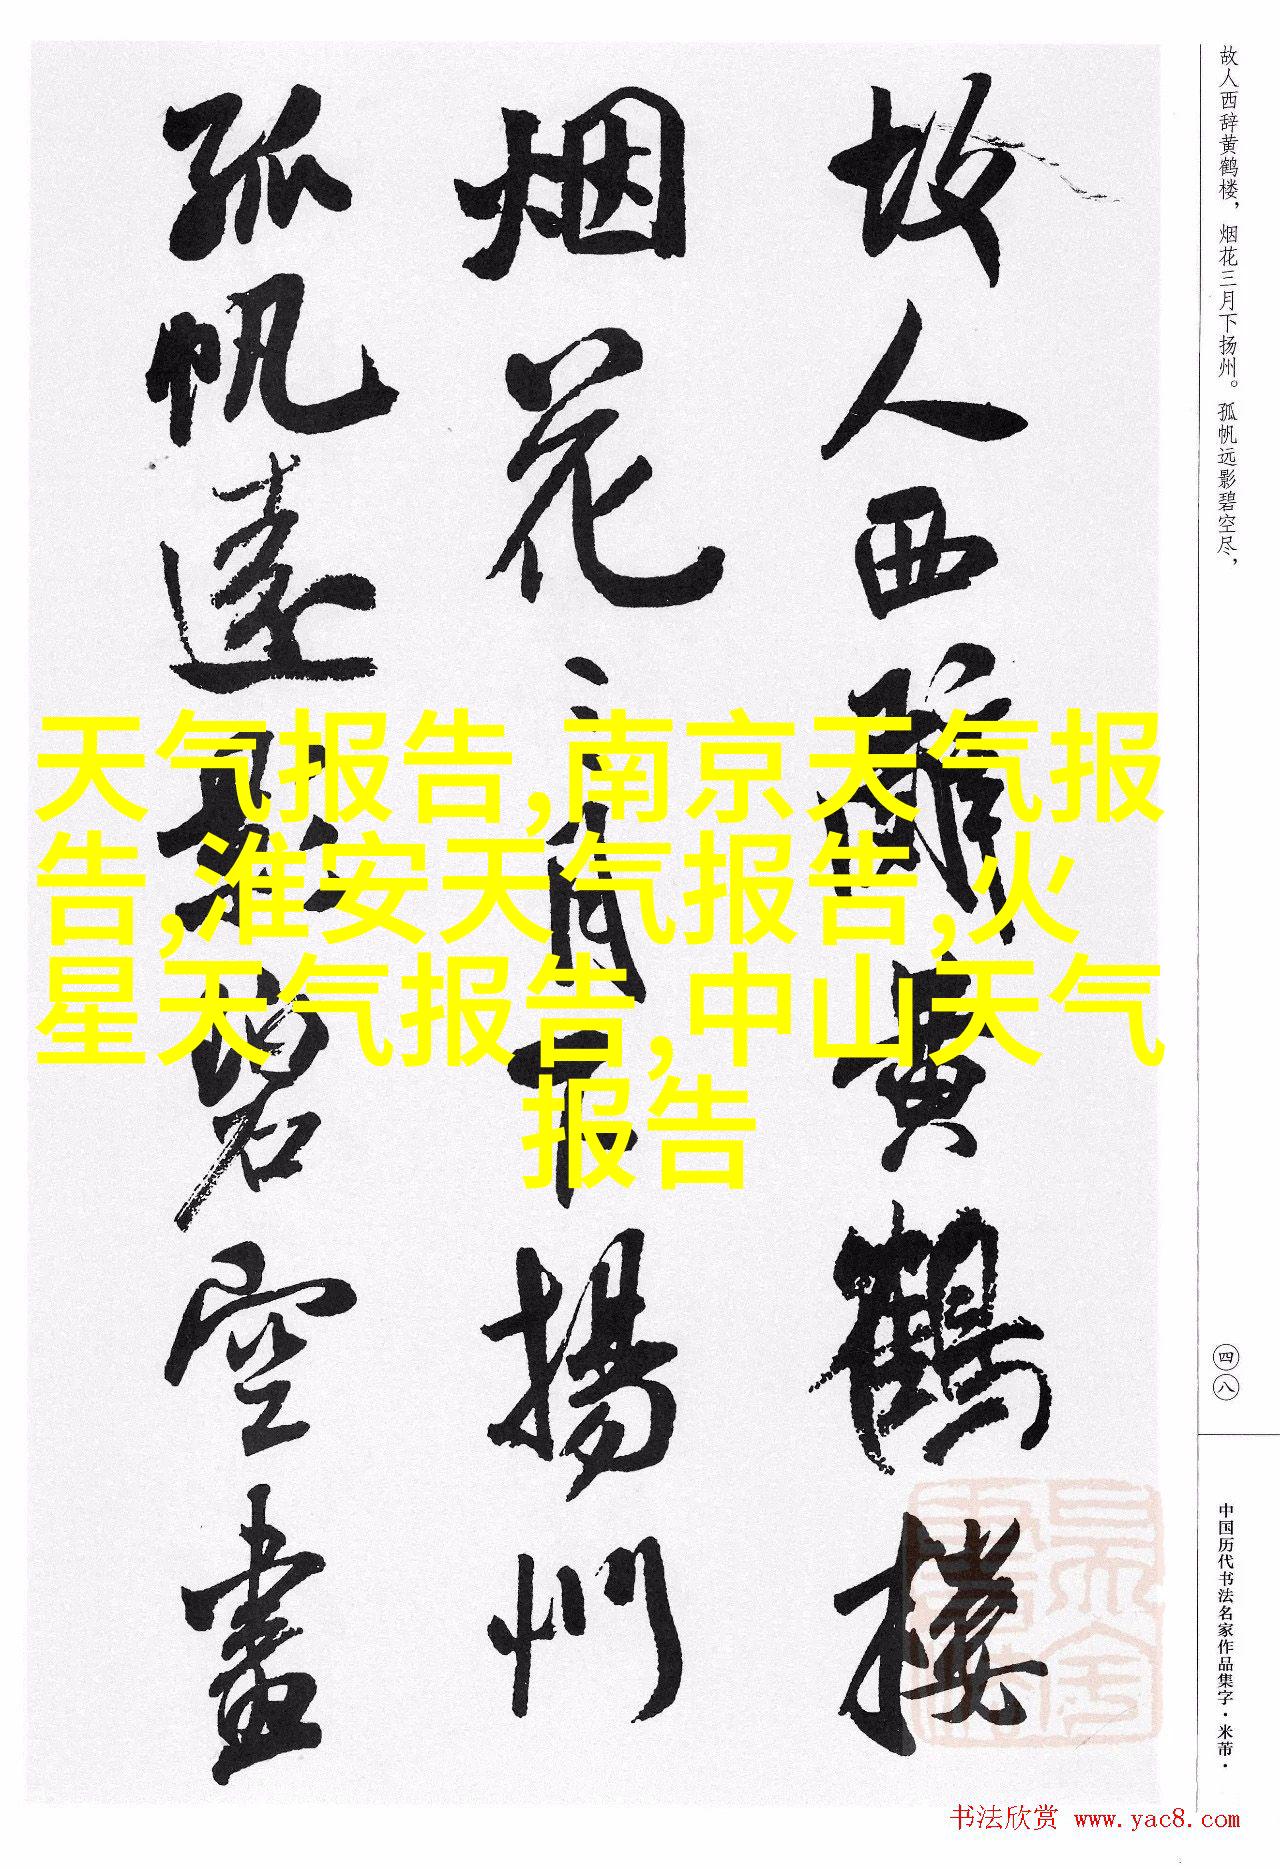 故人西辞黄鹤楼，烟花三月下扬州。孤帆远影碧空尽，
故人西辭黄鶴樓
烟花三月下揚州
孤帆遠影碧空盡
天气报告,南京天气报
告,淮安天气报告,火
星天气报告,中山天气
报告
四八
中国历代书法名家作品集字·米芾·
书法欣赏 www.yac8.com